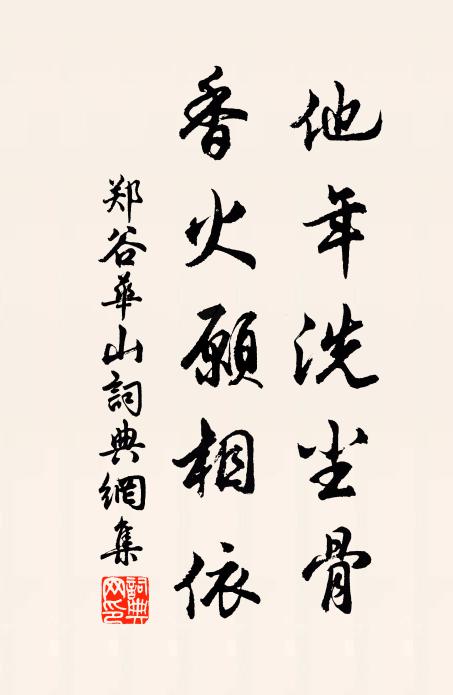 他年洗尘骨
香火願相依
郑谷華山詞典網集
詞典网印